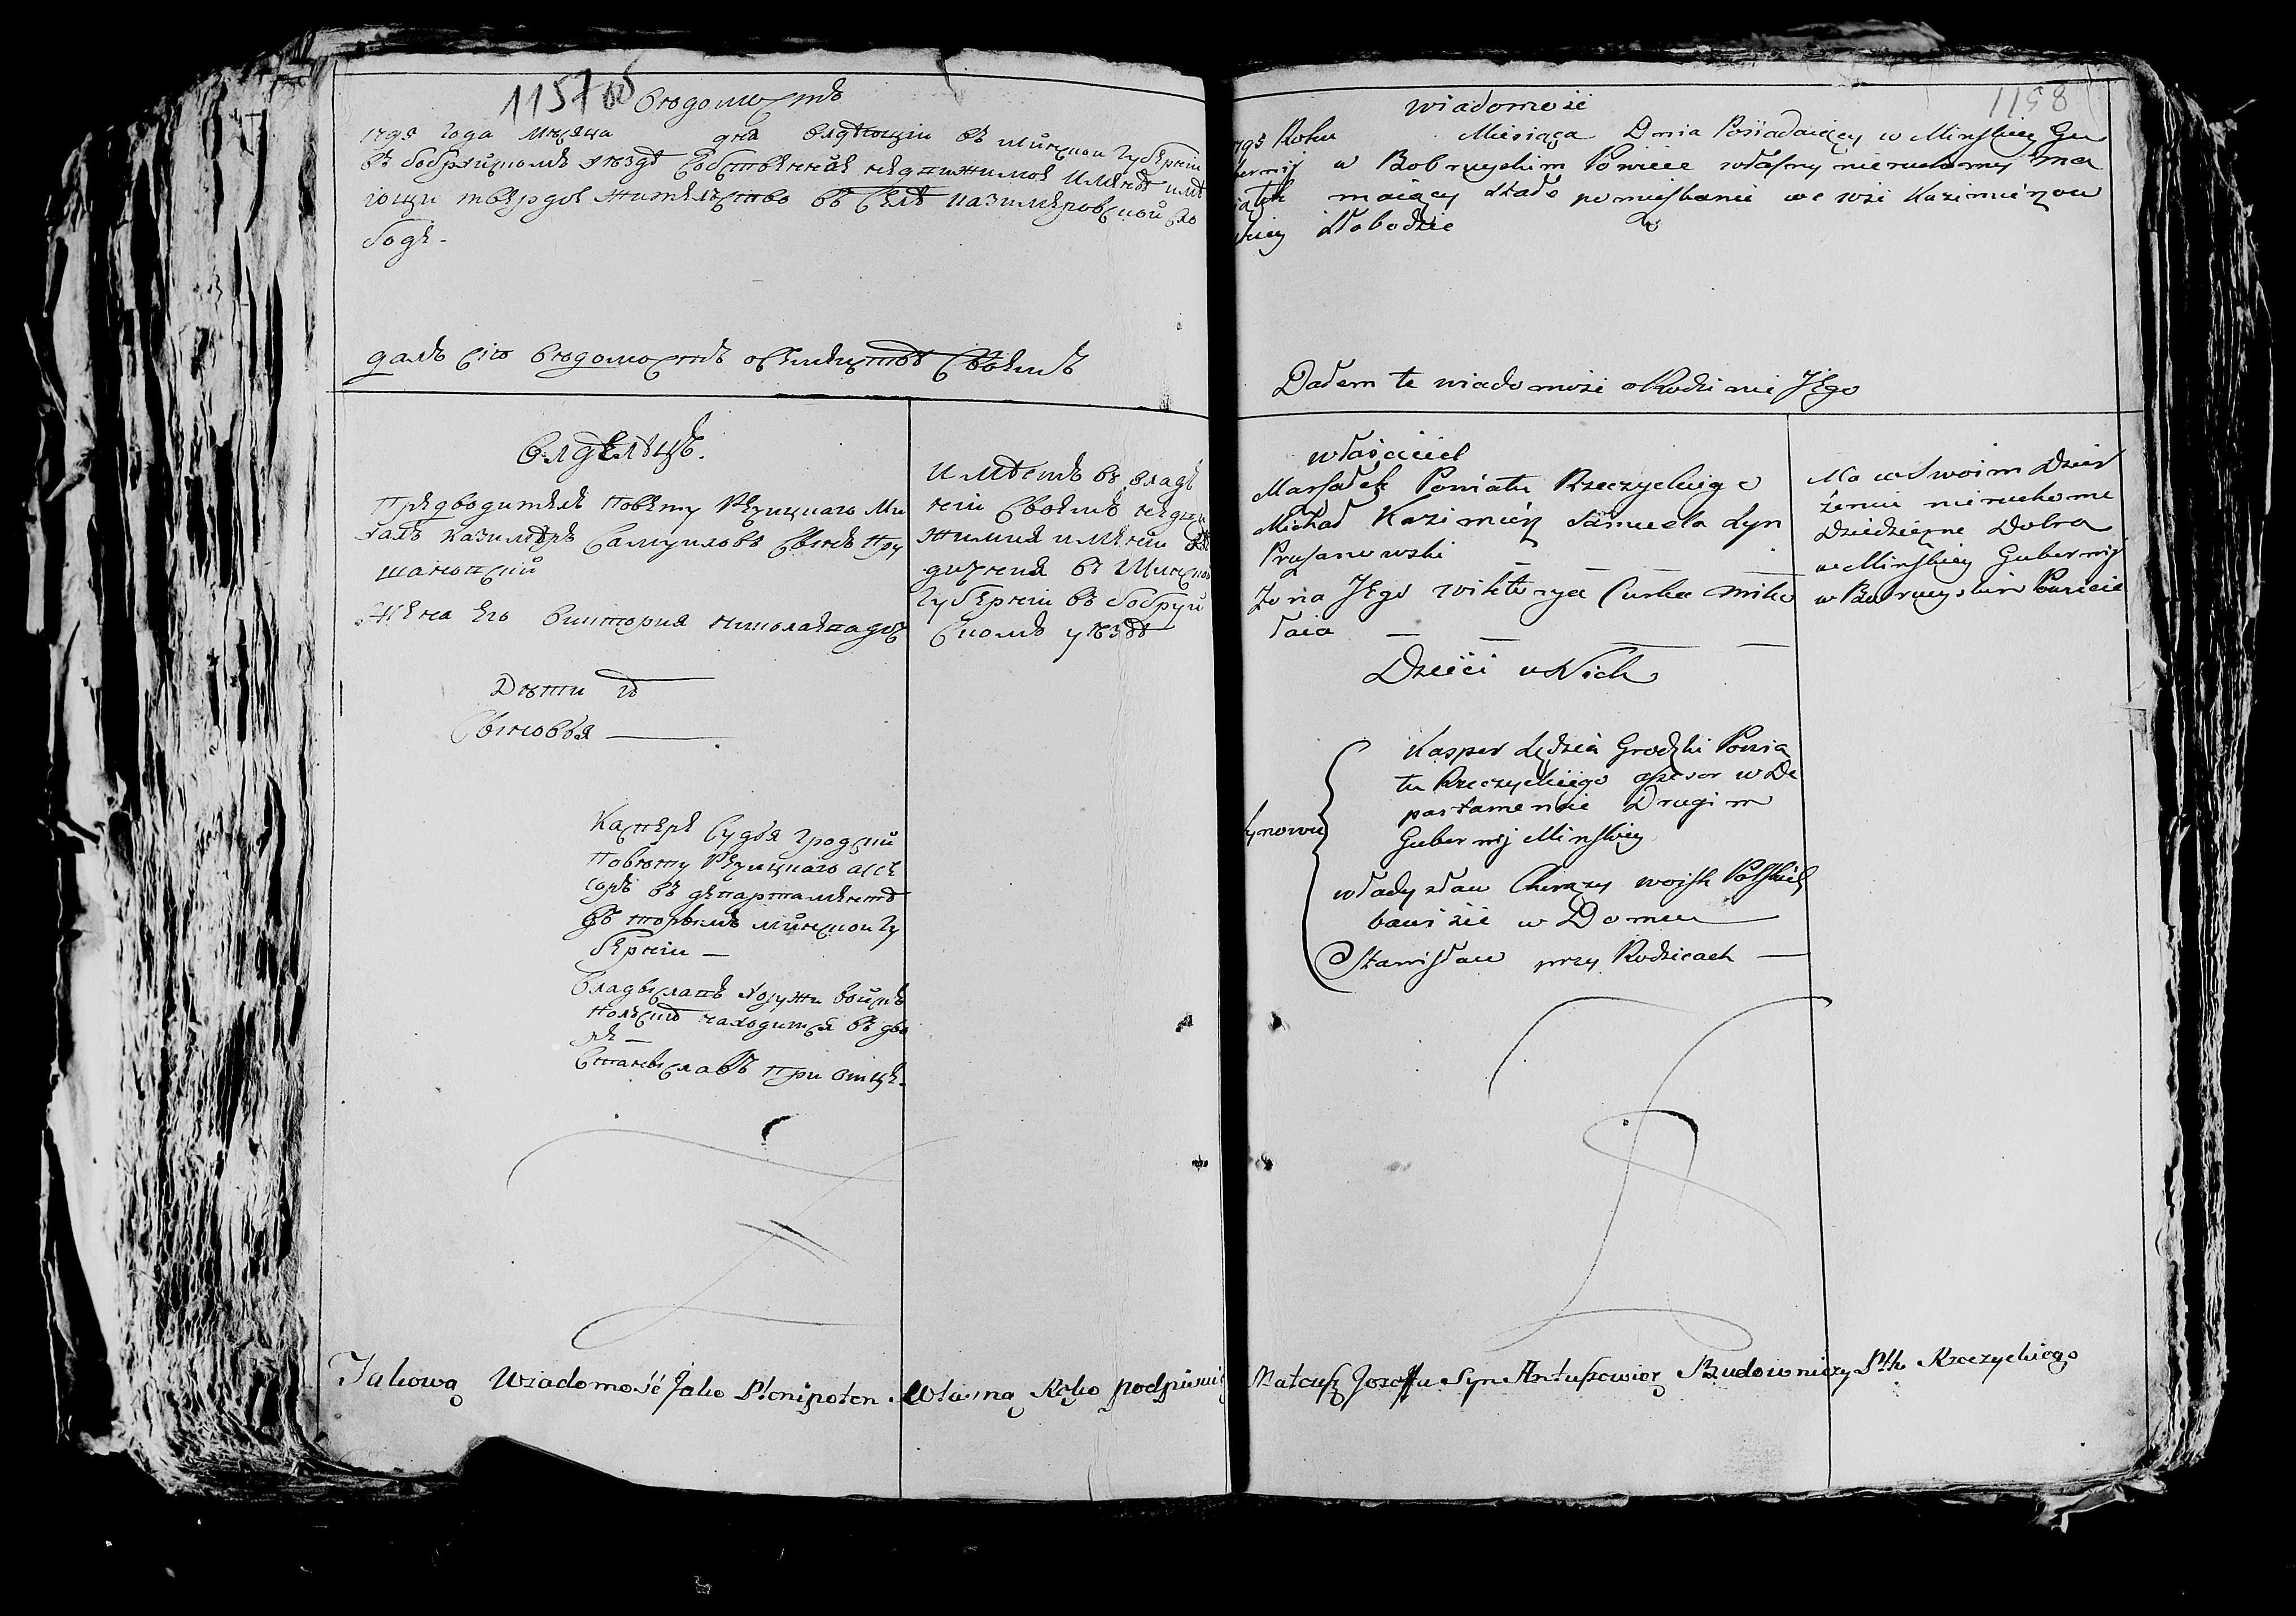 1157
вѣдомость
1795 года мѣсяца дня владѣющiи въ минской губернiи
въ бобруйскомъ уѣздѣ собственное недвижимое имѣнiе имѣ
ющи твердое жительство въ селѣ казимеровской сло
бодѣ.
далъ сiю вѣдомость о семействѣ своемъ
владѣлецъ.
Предводитель повѣту Речицкаго Ми
халъ казимѣръ самуиловъ сынъ Пру
шановскiй
Жена его виктория николаева дочь
Дѣти
сыновья
Касперъ судья гродскiй
повѣту Речицкаго ассе
соръ въ департаментѣ
въ торомъ минской гу
бернiи —
Владыславъ хорунжи войскъ
польскихъ находится въ до
мѣ —
Станыславъ при отцѣ.
имѣетъ въ владѣ
нiи своемъ недви
жимыя имѣнiи
дизныя въ Минской
губернiи въ бобруй
скомъ уѣздѣ
1158
wiadomość
1795 Roku Miesiąca Dnia Posiadaiący w Minskiey Gu
bernij w Bobruyskim Powiecie własny nieruchomy ma
iątek maiący stałe pomieszkanie we wsi Kazimierzow
skiey Słobodzie
Dałem te wiadomość o Rodzinie Jego
właściciel
Marszałek Powiatu Rzeczyckiego
Michał Kazimierz Samuela Syn
Pruszanowski —
Zona Jego wiktorya Curka Miko
łaia —
Dzieci u Nich
Synowie
Kasper Sędzia Grodzki Powia
tu Rzeczyckiego assesor w De
partamencie Drugim
Gubernij Minskiey
władysław Chorąży woysk Polskich
bawi sie w Domu
Stanisław przy Rodzicach —
Ma w Swoim Dzier
żeniu nieruchome
Dziedziczne Dobra
w Minskiey Gubernij
w Bobruyskim Powiecie
Jakową Wiadomość Jako Plenipotent Własną Ręką podpisuię Mateusz Jozefa Syn Antuszewicz Budowniczy Pttu Rzeczyckiego